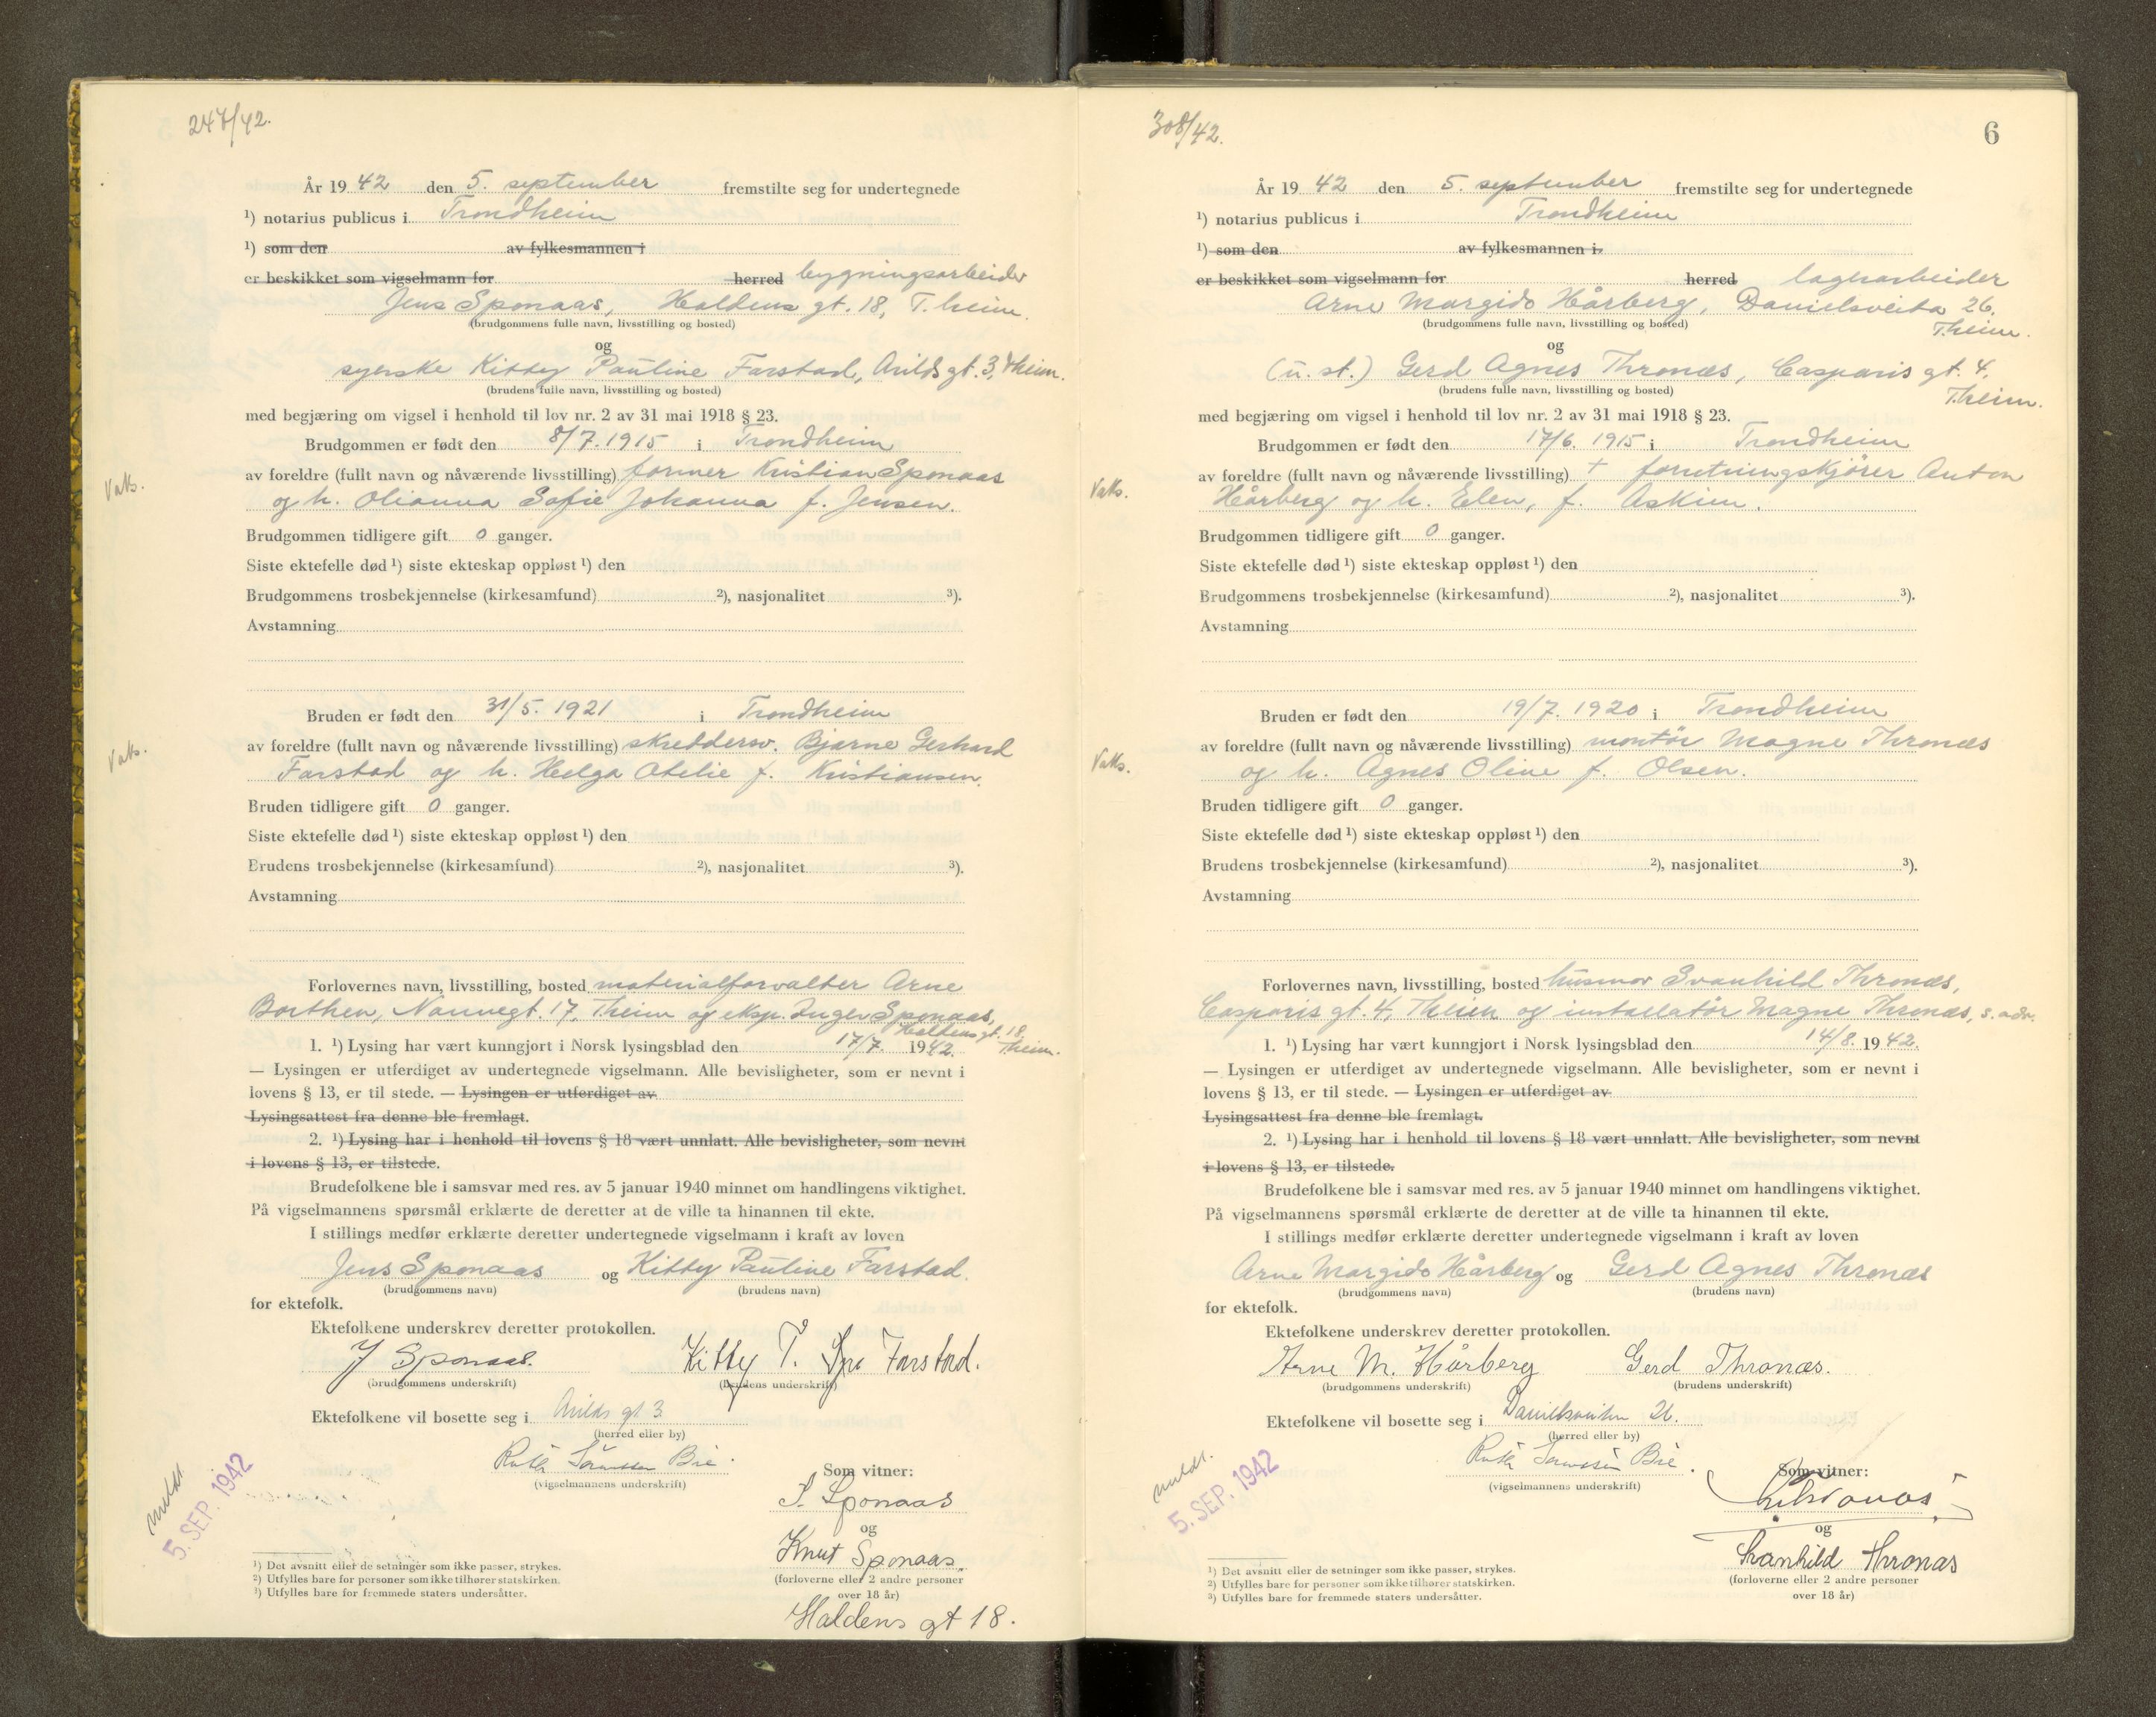 247/42.
År 1942 den 5. september fremstilte seg for undertegnede
¹) notarius publicus i Trondheim
¹) som den av fylkesmannen i
er beskikket som vigselmann for herred bygningsarbeider
Jens Sponaas, Haldens gt. 18, T.heim.
(brudgommens fulle navn, livsstilling og bosted)
og
syerske Kitty Pauline Farstad, Arilds gt. 3, T.heim.
(brudens fulle navn, livsstilling og bosted)
med begjæring om vigsel i henhold til lov nr. 2 av 31 mai 1918 § 23.
Brudgommen er født den 8/7. 1915 i Trondheim
Vaks.
av foreldre (fullt navn og nåværende livsstilling) former Kristian Sponaas
og h. Olianna Sofie Johanna f. Jensen.
Brudgommen tidligere gift 0 ganger.
Siste ektefelle død ¹) siste ekteskap oppløst ¹) den
Brudgommens trosbekjennelse (kirkesamfund) ²), nasjonalitet ³).
Avstamning
Bruden er født den 31/5. 1921 i Trondheim
Vaks.
av foreldre (fullt navn og nåværende livsstilling) skreddersv. Bjarne Gerhard
Farstad og h. Helga Otelie f. Kristiansen.
Bruden tidligere gift 0 ganger.
Siste ektefelle død ¹) siste ekteskap oppløst ¹) den
Brudens trosbekjennelse (kirkesamfund) ²), nasjonalitet ³).
Avstamning
Forlovernes navn, livsstilling, bosted materialforvalter Arne
Borthen, Nannegt. 17, T.heim og eksp. Inger Sponaas,
Haldens gt. 18, T.heim.
1. ¹) Lysing har vært kunngjort i Norsk lysingsblad den 17/7. 1942.
— Lysingen er utferdiget av undertegnede vigselmann. Alle bevisligheter, som er nevnt i
lovens § 13, er til stede. — Lysingen er utferdiget av
Lysingsattest fra denne ble fremlagt.
2. ¹) Lysing har i henhold til lovens § 18 vært unnlatt. Alle bevisligheter, som nevnt
i lovens § 13, er tilstede.
Brudefolkene ble i samsvar med res. av 5 januar 1940 minnet om handlingens viktighet.
På vigselmannens spørsmål erklærte de deretter at de ville ta hinannen til ekte.
I stillings medfør erklærte deretter undertegnede vigselmann i kraft av loven
Jens Sponaas og Kitty Pauline Farstad.
(brudgommens navn) (brudens navn)
for ektefolk.
Ektefolkene underskrev deretter protokollen.
J Sponaas. Kitty Farstad.
(brudgommens underskrift) (brudens underskrift)
Ektefolkene vil bosette seg i Arilds gt 3
(herred eller by)
Ruth Bie.
(vigselmannens underskrift)
Som vitner:
I. Sponaas
og
Knut Sponaas
(forloverne eller 2 andre personer
over 18 år)
Haldens gt 18.
meldt
5. SEP. 1942
¹) Det avsnitt eller de setninger som ikke passer, strykes.
²) Utfylles bare for personer som ikke tilhører statskirken.
³) Utfylles bare for fremmede staters undersåtter.
308/42.
6
År 1942 den 5. september fremstilte seg for undertegnede
¹) notarius publicus i Trondheim
¹) som den av fylkesmannen i
er beskikket som vigselmann for herred lagerarbeider
Arne Margido Hårberg, Danielsveita 26,
T.heim.
(brudgommens fulle navn, livsstilling og bosted)
og
(u. st.) Gerd Agnes Thronæs, Casparis gt. 4,
T.heim.
(brudens fulle navn, livsstilling og bosted)
med begjæring om vigsel i henhold til lov nr. 2 av 31 mai 1918 § 23.
Brudgommen er født den 17/6. 1915 i Trondheim
Vaks.
av foreldre (fullt navn og nåværende livsstilling) + forretningskjører Anton
Hårberg og h. Elen, f. Askim.
Brudgommen tidligere gift 0 ganger.
Siste ektefelle død ¹) siste ekteskap oppløst ¹) den
Brudgommens trosbekjennelse (kirkesamfund) ²), nasjonalitet ³).
Avstamning
Bruden er født den 19/7. 1920 i Trondheim
Vaks.
av foreldre (fullt navn og nåværende livsstilling) montør Magne Thronæs
og h. Agnes Oline f. Olsen.
Bruden tidligere gift 0 ganger.
Siste ektefelle død ¹) siste ekteskap oppløst ¹) den
Brudens trosbekjennelse (kirkesamfund) ²), nasjonalitet ³).
Avstamning
Forlovernes navn, livsstilling, bosted husmor Svanhild Thronæs,
Casparis gt. 4, T.heim og installatør Magne Thronæs, s. adr.
1. ¹) Lysing har vært kunngjort i Norsk lysingsblad den 14/8. 1942.
— Lysingen er utferdiget av undertegnede vigselmann. Alle bevisligheter, som er nevnt i
lovens § 13, er til stede. — Lysingen er utferdiget av
Lysingsattest fra denne ble fremlagt.
2. ¹) Lysing har i henhold til lovens § 18 vært unnlatt. Alle bevisligheter, som nevnt
i lovens § 13, er tilstede.
Brudefolkene ble i samsvar med res. av 5 januar 1940 minnet om handlingens viktighet.
På vigselmannens spørsmål erklærte de deretter at de ville ta hinannen til ekte.
I stillings medfør erklærte deretter undertegnede vigselmann i kraft av loven
Arne Margido Hårberg og Gerd Agnes Thronæs
(brudgommens navn) (brudens navn)
for ektefolk.
Ektefolkene underskrev deretter protokollen.
Arne M. Hårberg Gerd Thronæs.
(brudgommens underskrift) (brudens underskrift)
Ektefolkene vil bosette seg i Danielsveiten 26.
(herred eller by)
Ruth Bie.
(vigselmannens underskrift)
Som vitner:
og
Svanhild Thronæs
(forloverne eller 2 andre personer
over 18 år)
meldt.
5. SEP. 1942
¹) Det avsnitt eller de setninger som ikke passer, strykes.
²) Utfylles bare for personer som ikke tilhører statskirken.
³) Utfylles bare for fremmede staters undersåtter.